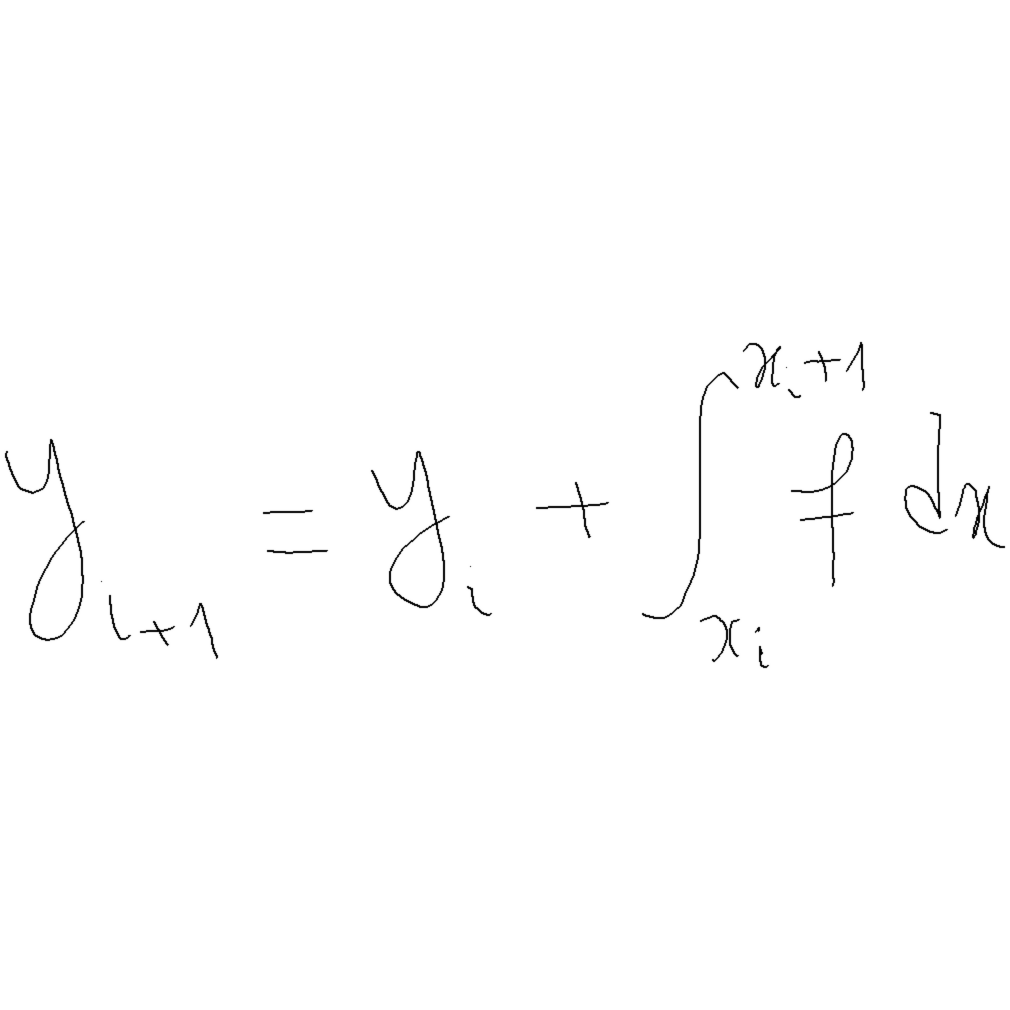 $y_{i+1} = y_i + \int_{x_i}^{x_i+1} f \, dx$